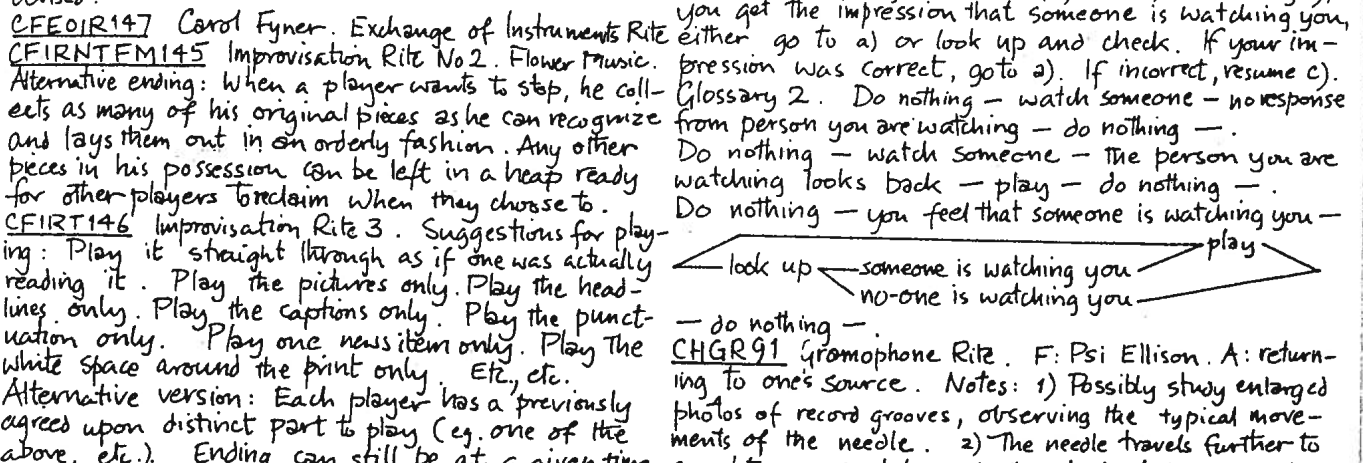 CFEOIR147 Carol Fyner. Exchange of Instruments Rite
CFIRNTFM145 Improvisation Rite No 2. Flower Music.
Alternative ending: When a player wants to stop, he coll-
ects as many of his original pieces as he can recognize
and lays them out in an orderly fashion. Any other
pieces in his possession can be left in a heap ready
for other players to reclaim when they choose to.
CFIRT146 Improvisation Rite 3. Suggestions for play-
ing: Play it straight through as if one was actually
reading it. Play the pictures only. Play the head-
lines only. Play the captions only. Play the punct-
uation only. Play one news item only. Play the
white space around the print only. Etc., etc.
Alternative version: Each player has a previously
agreed upon distinct part to play (eg. one of the
above, etc.). Ending can still be at a given time
you get the impression that someone is watching you,
either go to a) or look up and check. If your im-
pression was correct, go to a). If incorrect, resume c).
Glossary 2. Do nothing — watch someone — no response
from person you are watching — do nothing —.
Do nothing — watch someone — the person you are
watching looks back — play — do nothing —.
Do nothing — you feel that someone is watching you —
play
look up — someone is watching you
no-one is watching you
— do nothing —.
CHGR91 Gramophone Rite. F: Psi Ellison. A: return-
ing to one's source. Notes: 1) Possibly study enlarged
photos of record grooves, observing the typical move-
ments of the needle. 2) The needle travels further to